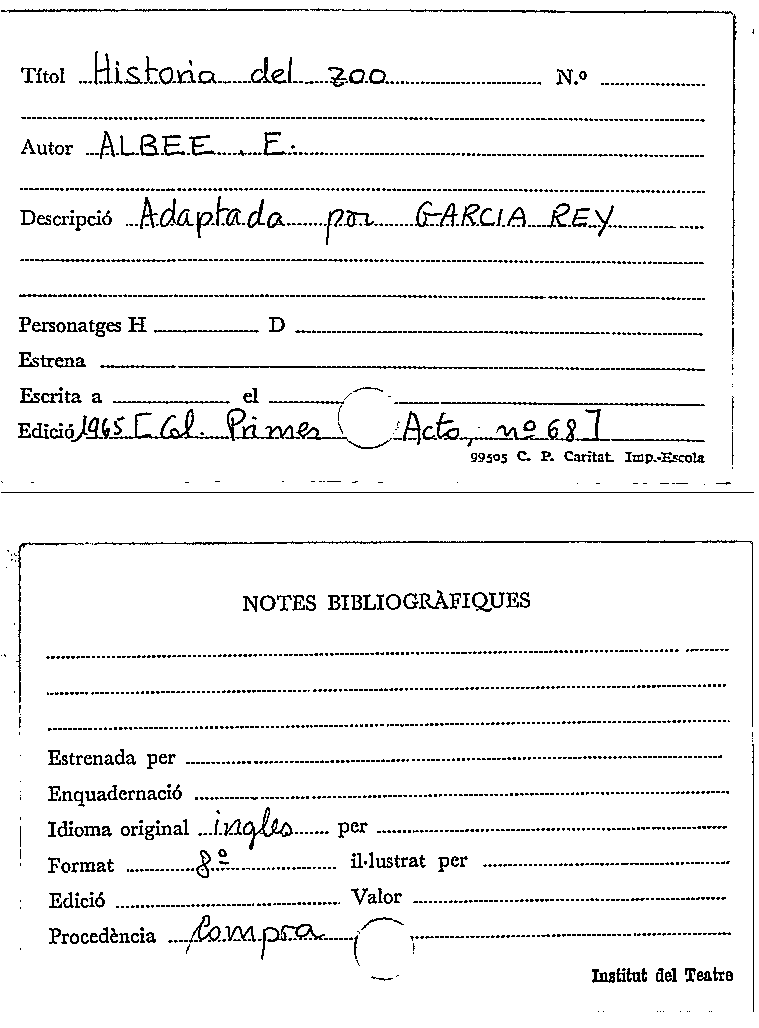 Títol Historia del zoo N.º
Autor ALBEE, E.
Descripció Adaptada por GARCIA REY
Personatges H D
Estrena
Escrita a el
Edició 1965 [Col. Primer Acto, nº 68]
99505 C. P. Caritat. Imp.-Escola
NOTES BIBLIOGRÀFIQUES
Estrenada per
Enquadernació
Idioma original ingles per
Format 8º il·lustrat per
Edició Valor
Procedència Compra
Institut del Teatre